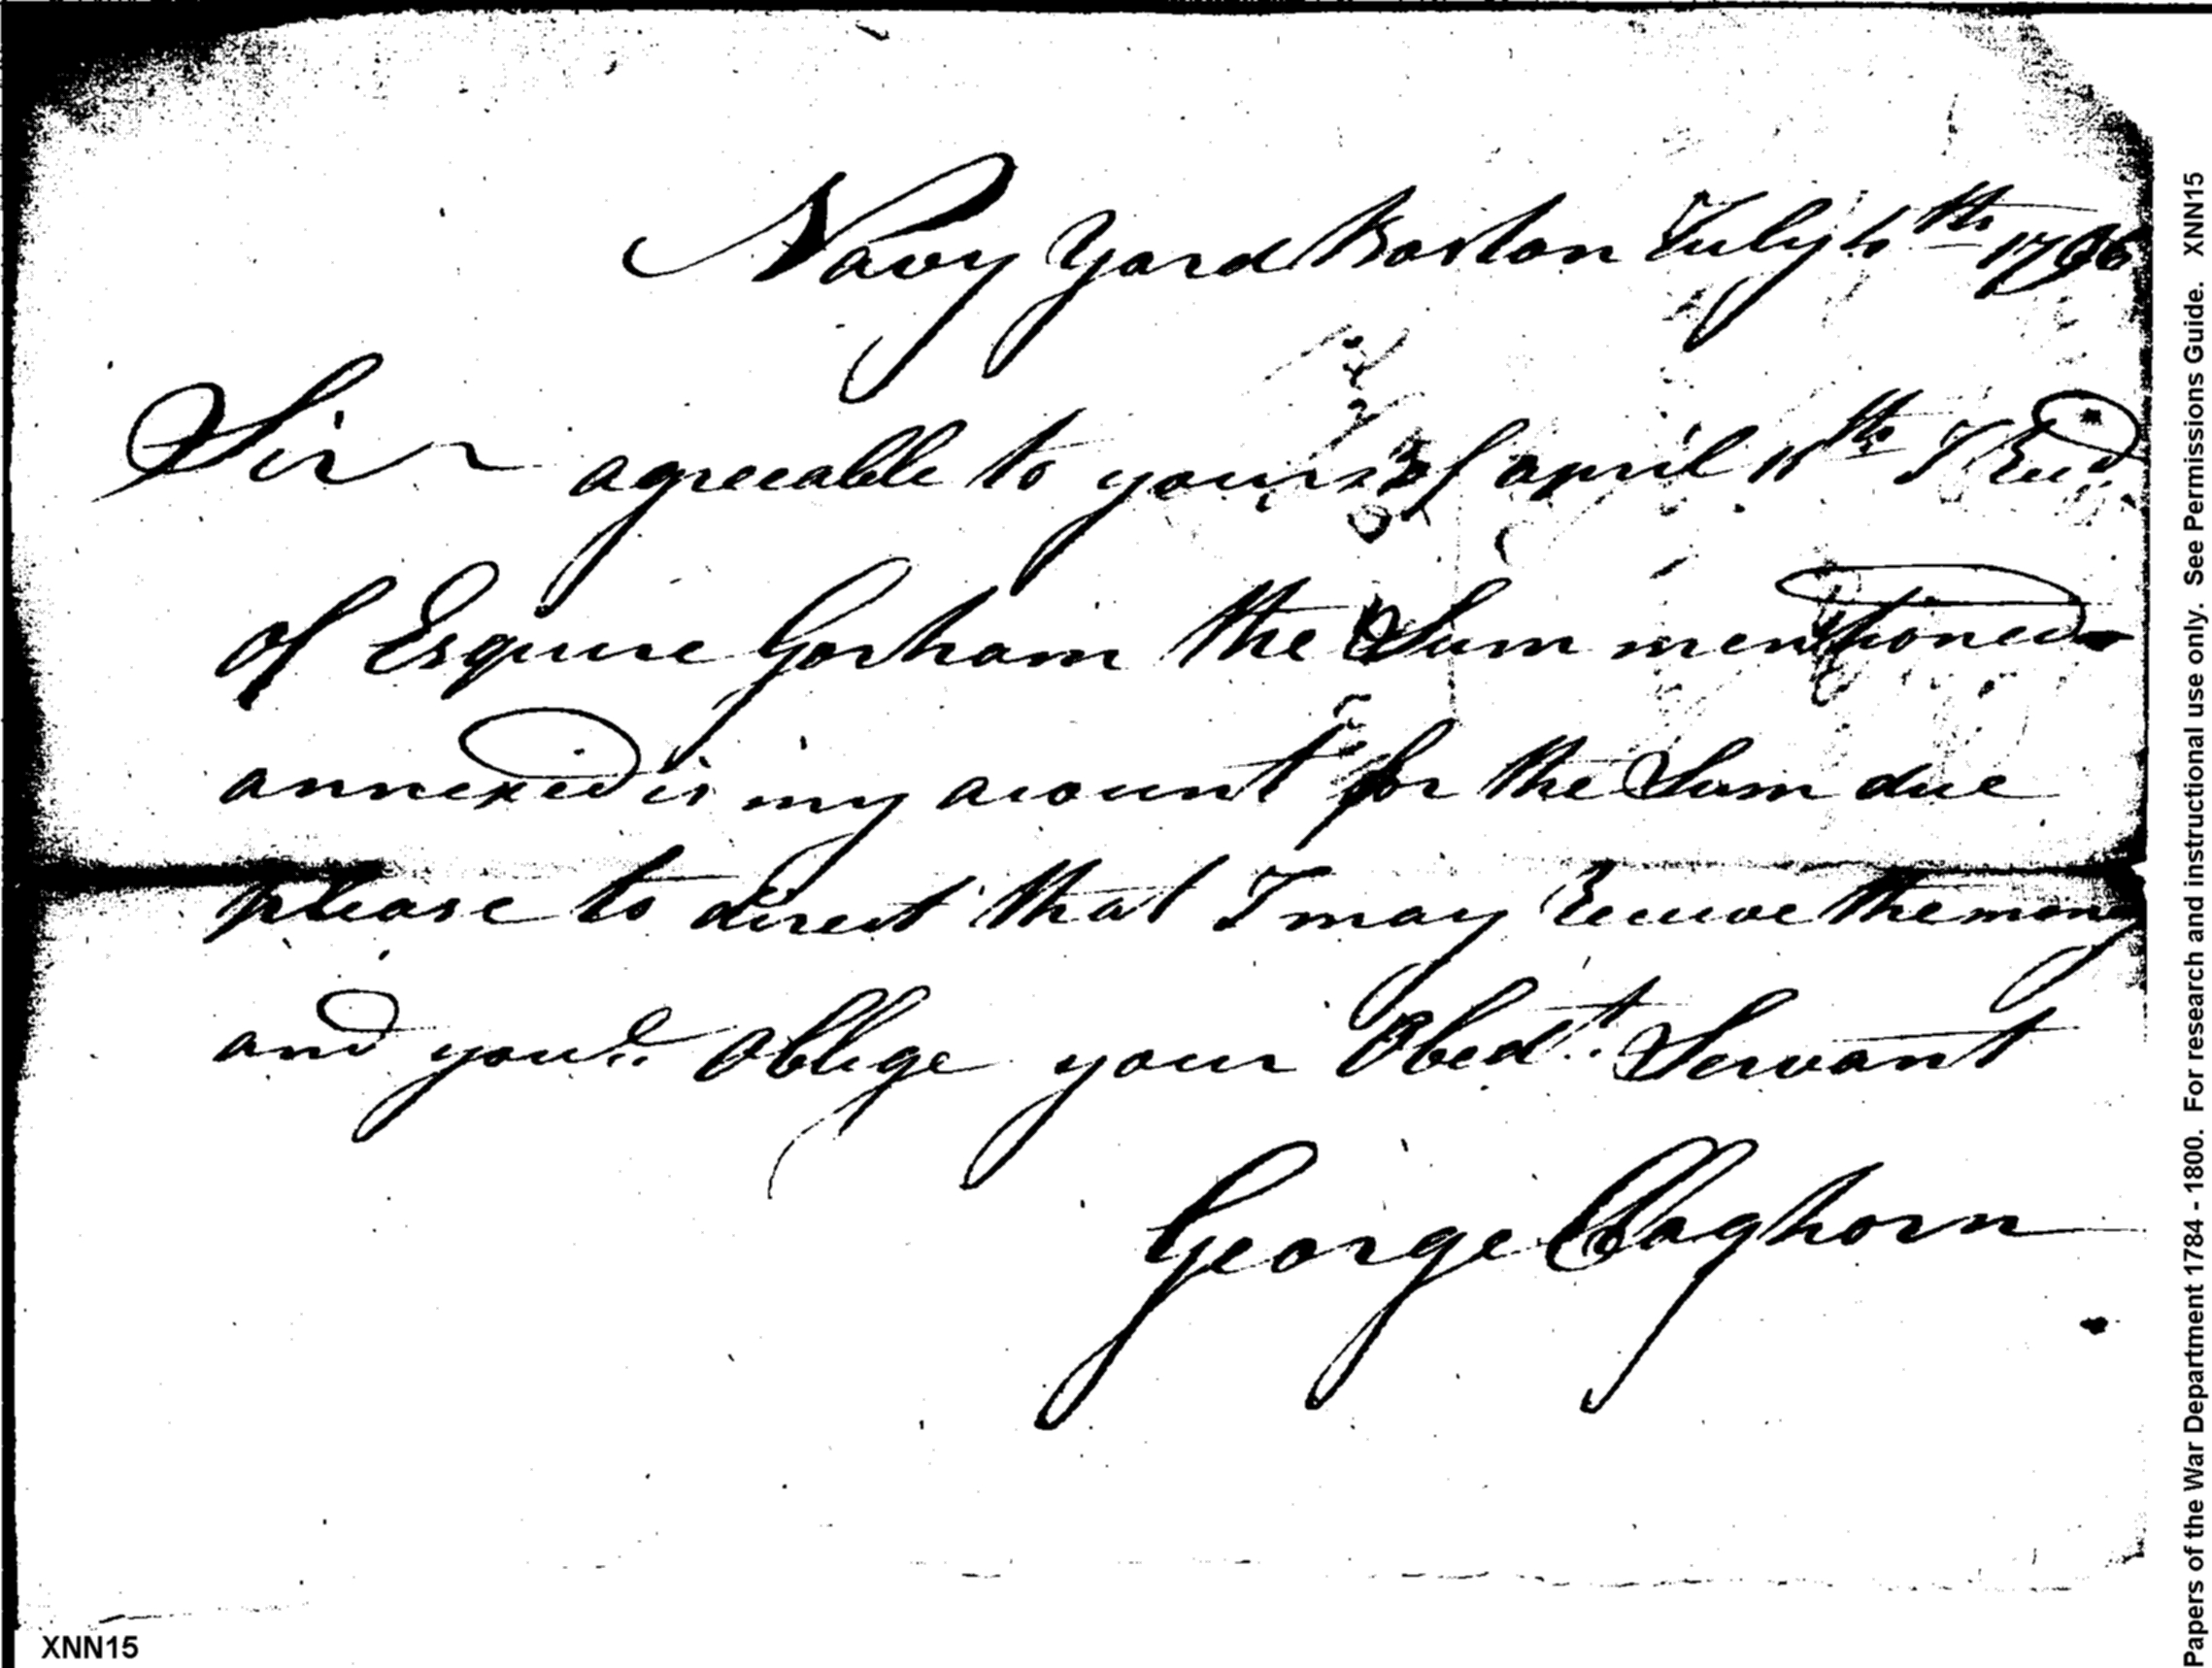 Navy Yard Boston July 4th 1796
Sir agreeable to yours of april 11th I Recd
of Esquire Gorham the Sum mentioned
annexed is my acount for the Sum due
please to direct that I may Receive the money
and you'll Oblige your Obedt Servant
George Claghorn
XNN15
Papers of the War Department 1784 - 1800. For research and instructional use only. See Permissions Guide. XNN15